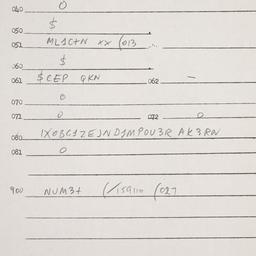 040 0
050 $
051 ML1C+N xx (013
060 $
061 $CEP QKN 062 –
070 0
071 0 072 0
080 1X0BC1ZEJND1MP0U3R AK3RN
081 0
900 NUM3+ (/159110 (027